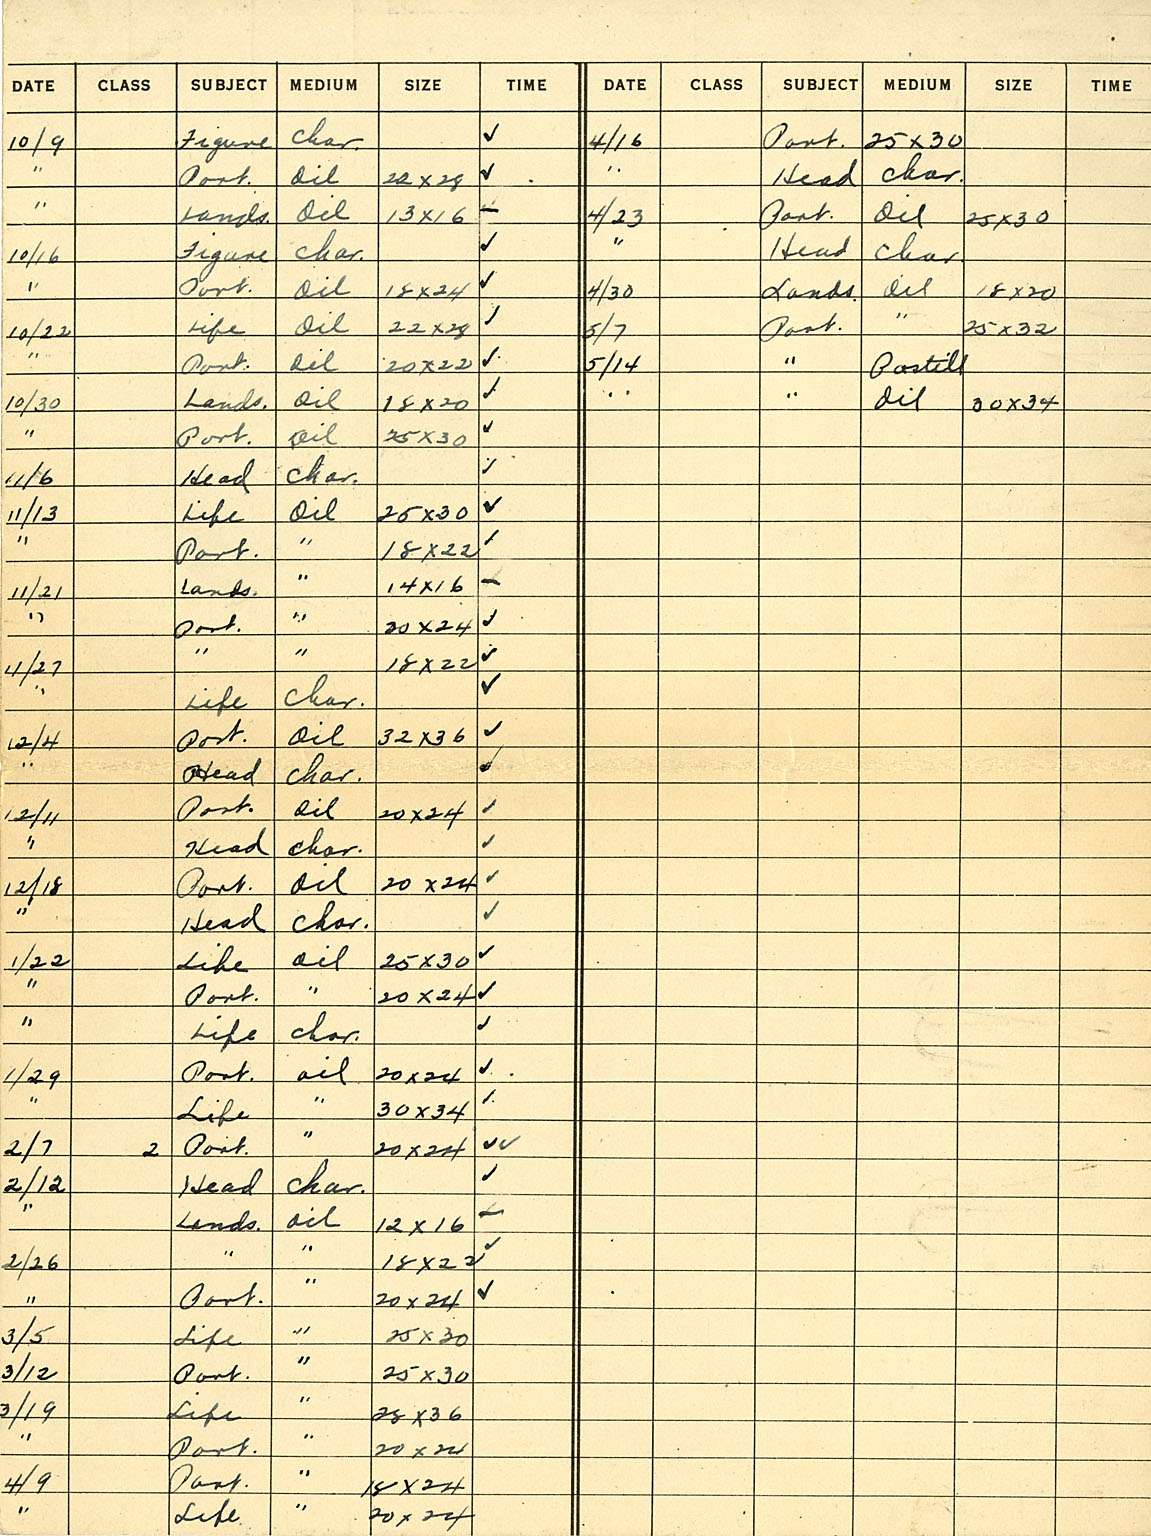 DATE CLASS SUBJECT MEDIUM SIZE TIME
10/9 Figure Char. ✓
" Port. Oil 22x28 ✓
" Lands. Oil 13x16 –
10/16 Figure Char. ✓
" Port. Oil 18x24 ✓
10/22 Life Oil 22x28 ✓
" Port. Oil 20x22 ✓
10/30 Lands. Oil 18x20 ✓
" Port. Oil 25x30 ✓
11/6 Head Char. ✓
11/13 Life Oil 25x30 ✓
" Port. " 18x22 ✓
11/21 Lands. " 14x16 –
" Port. " 20x24 ✓
11/27 " " 18x22 ✓
" Life Char. ✓
12/4 Port. Oil 32x36 ✓
" Head Char. ✓
12/11 Port. Oil 20x24 ✓
" Head Char. ✓
12/18 Port. Oil 20x24 ✓
" Head Char. ✓
1/22 Life Oil 25x30 ✓
" Port. " 20x24 ✓
" Life Char. ✓
1/29 Port. Oil 20x24 ✓
" Life " 30x34 ✓
2/7 2 Port. " 20x24 ✓✓
2/12 Head Char. ✓
" Lands. Oil 12x16 –
2/26 " " 18x22 ✓
" Port. " 20x24 ✓
3/5 Life " 25x30
3/12 Port. " 25x30
3/19 Life " 28x36
" Port. " 20x24
4/9 Port. " 18x24
" Life " 20x24
DATE CLASS SUBJECT MEDIUM SIZE TIME
4/16 Port. 25x30
" Head Char.
4/23 Port. Oil 25x30
" Head Char.
4/30 Lands. Oil 18x20
5/7 Port. " 25x32
5/14 " Pastill
" " Oil 30x34